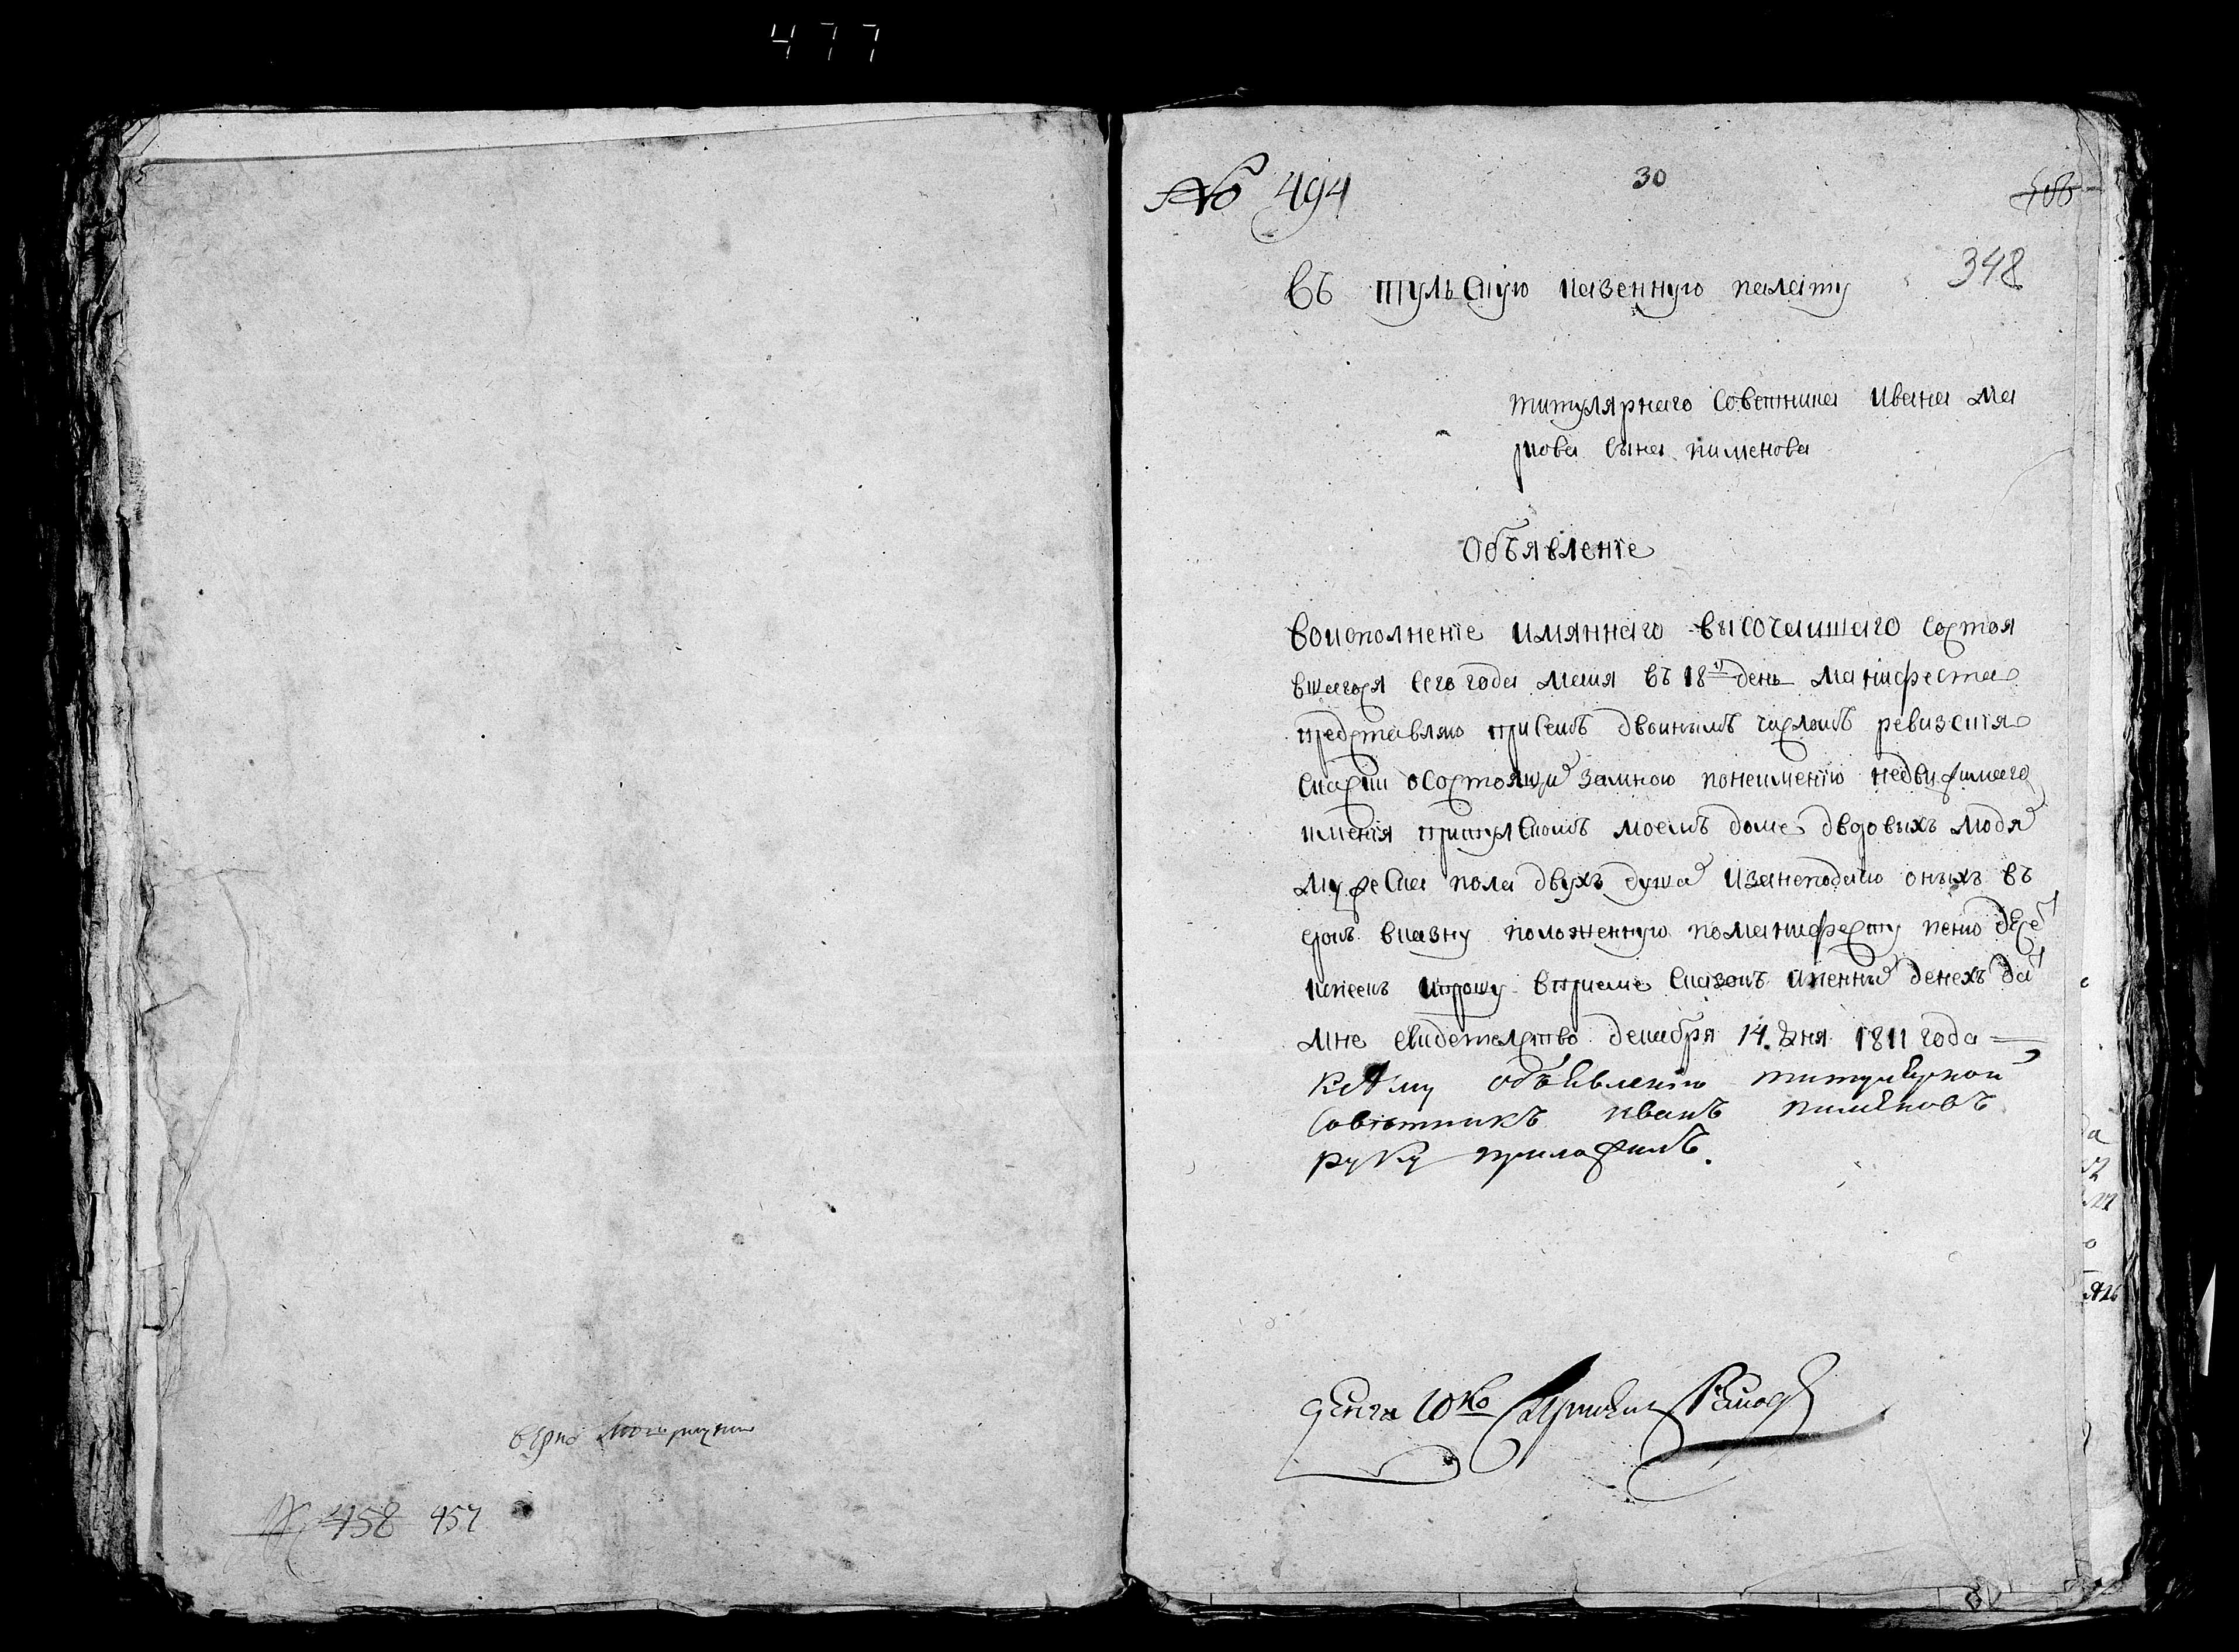 477
верно
458 457
№ 494
30
348
Въ тульскую казенную палату
титулярнаго Советника Ивана Ма
ркова сына пименова
Объявленіе
Воисполненіе имяннаго высочаишаго состоя
вшагося сего года маия въ 18й день манифеста
представляю присемъ двоинымъ числомъ ревизския
скаски осостоящих замною понеимению недвижимаго
имения притулскомъ моемъ доме дворовыхъ людях
мужеска пола двухъ душах изанеподачю оныхъ въ
срокъ вказну положенную поманифесту пеню
копеекъ ипрошу вприеме сказокъ ипенных денехъ дат
мне свидетелство декабря 14. дня 1811 года
Ксему объявлению титулярнои
советникъ иванъ пименовъ
руку приложилъ.